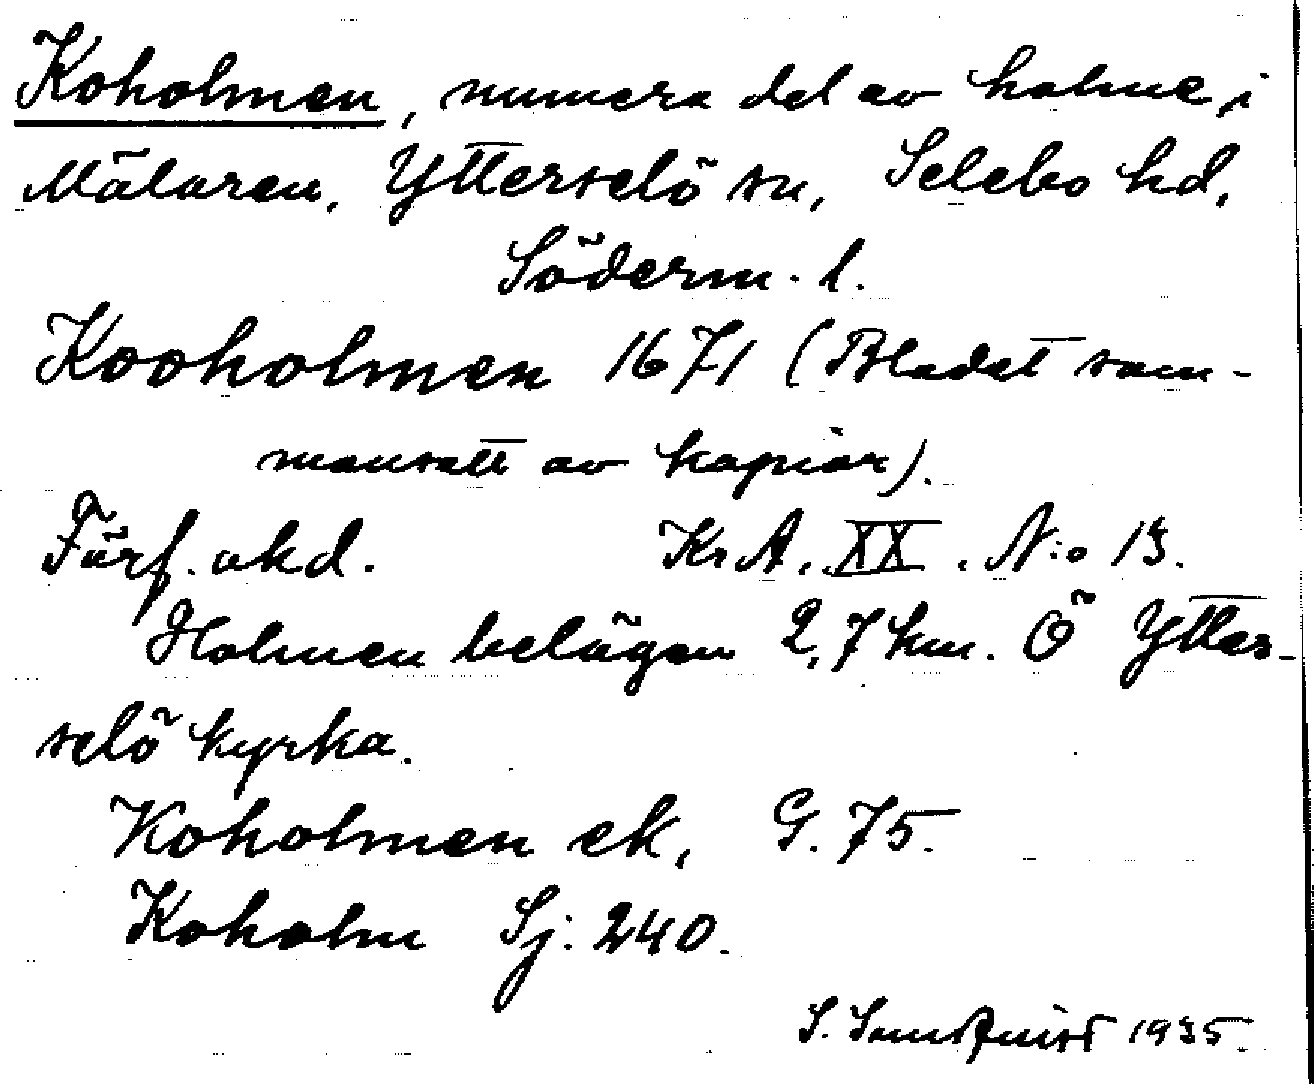 Koholmen, numera del av holme, i
Mälaren, Ytterselö sn, Selebo hd,
Söderm. l.
Kooholmen 1671 (Bladet sam-
mansatt av kopior).
Förf. okd. Kr.A. XX. N:o 13.
Holmen belägen 2,7 km. Ö Ytter-
selö kyrka.
Koholmen ek, G. 75.
Koholm Sj. 240.
S. 1935.